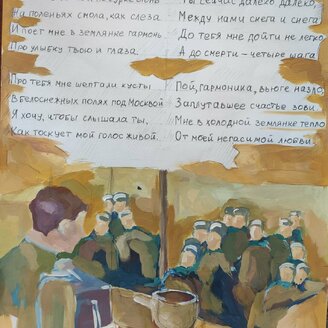 На поленьях смола, как слеза
И поет мне в землянке гармонь
Про улыбку твою и глаза.
Про тебя мне шептали кусты
В белоснежных полях под Москвой
Я хочу, чтобы слышала ты,
Как тоскует мой голос живой.
Ты сейчас далеко далеко,
Между нами снега и снега
До тебя мне дойти не легко,
А до смерти – четыре шага
Пой, гармоника, вьюге назло,
Заплутавшее счастье зови
Мне в холодной землянке тепло
От моей негасимой любви.